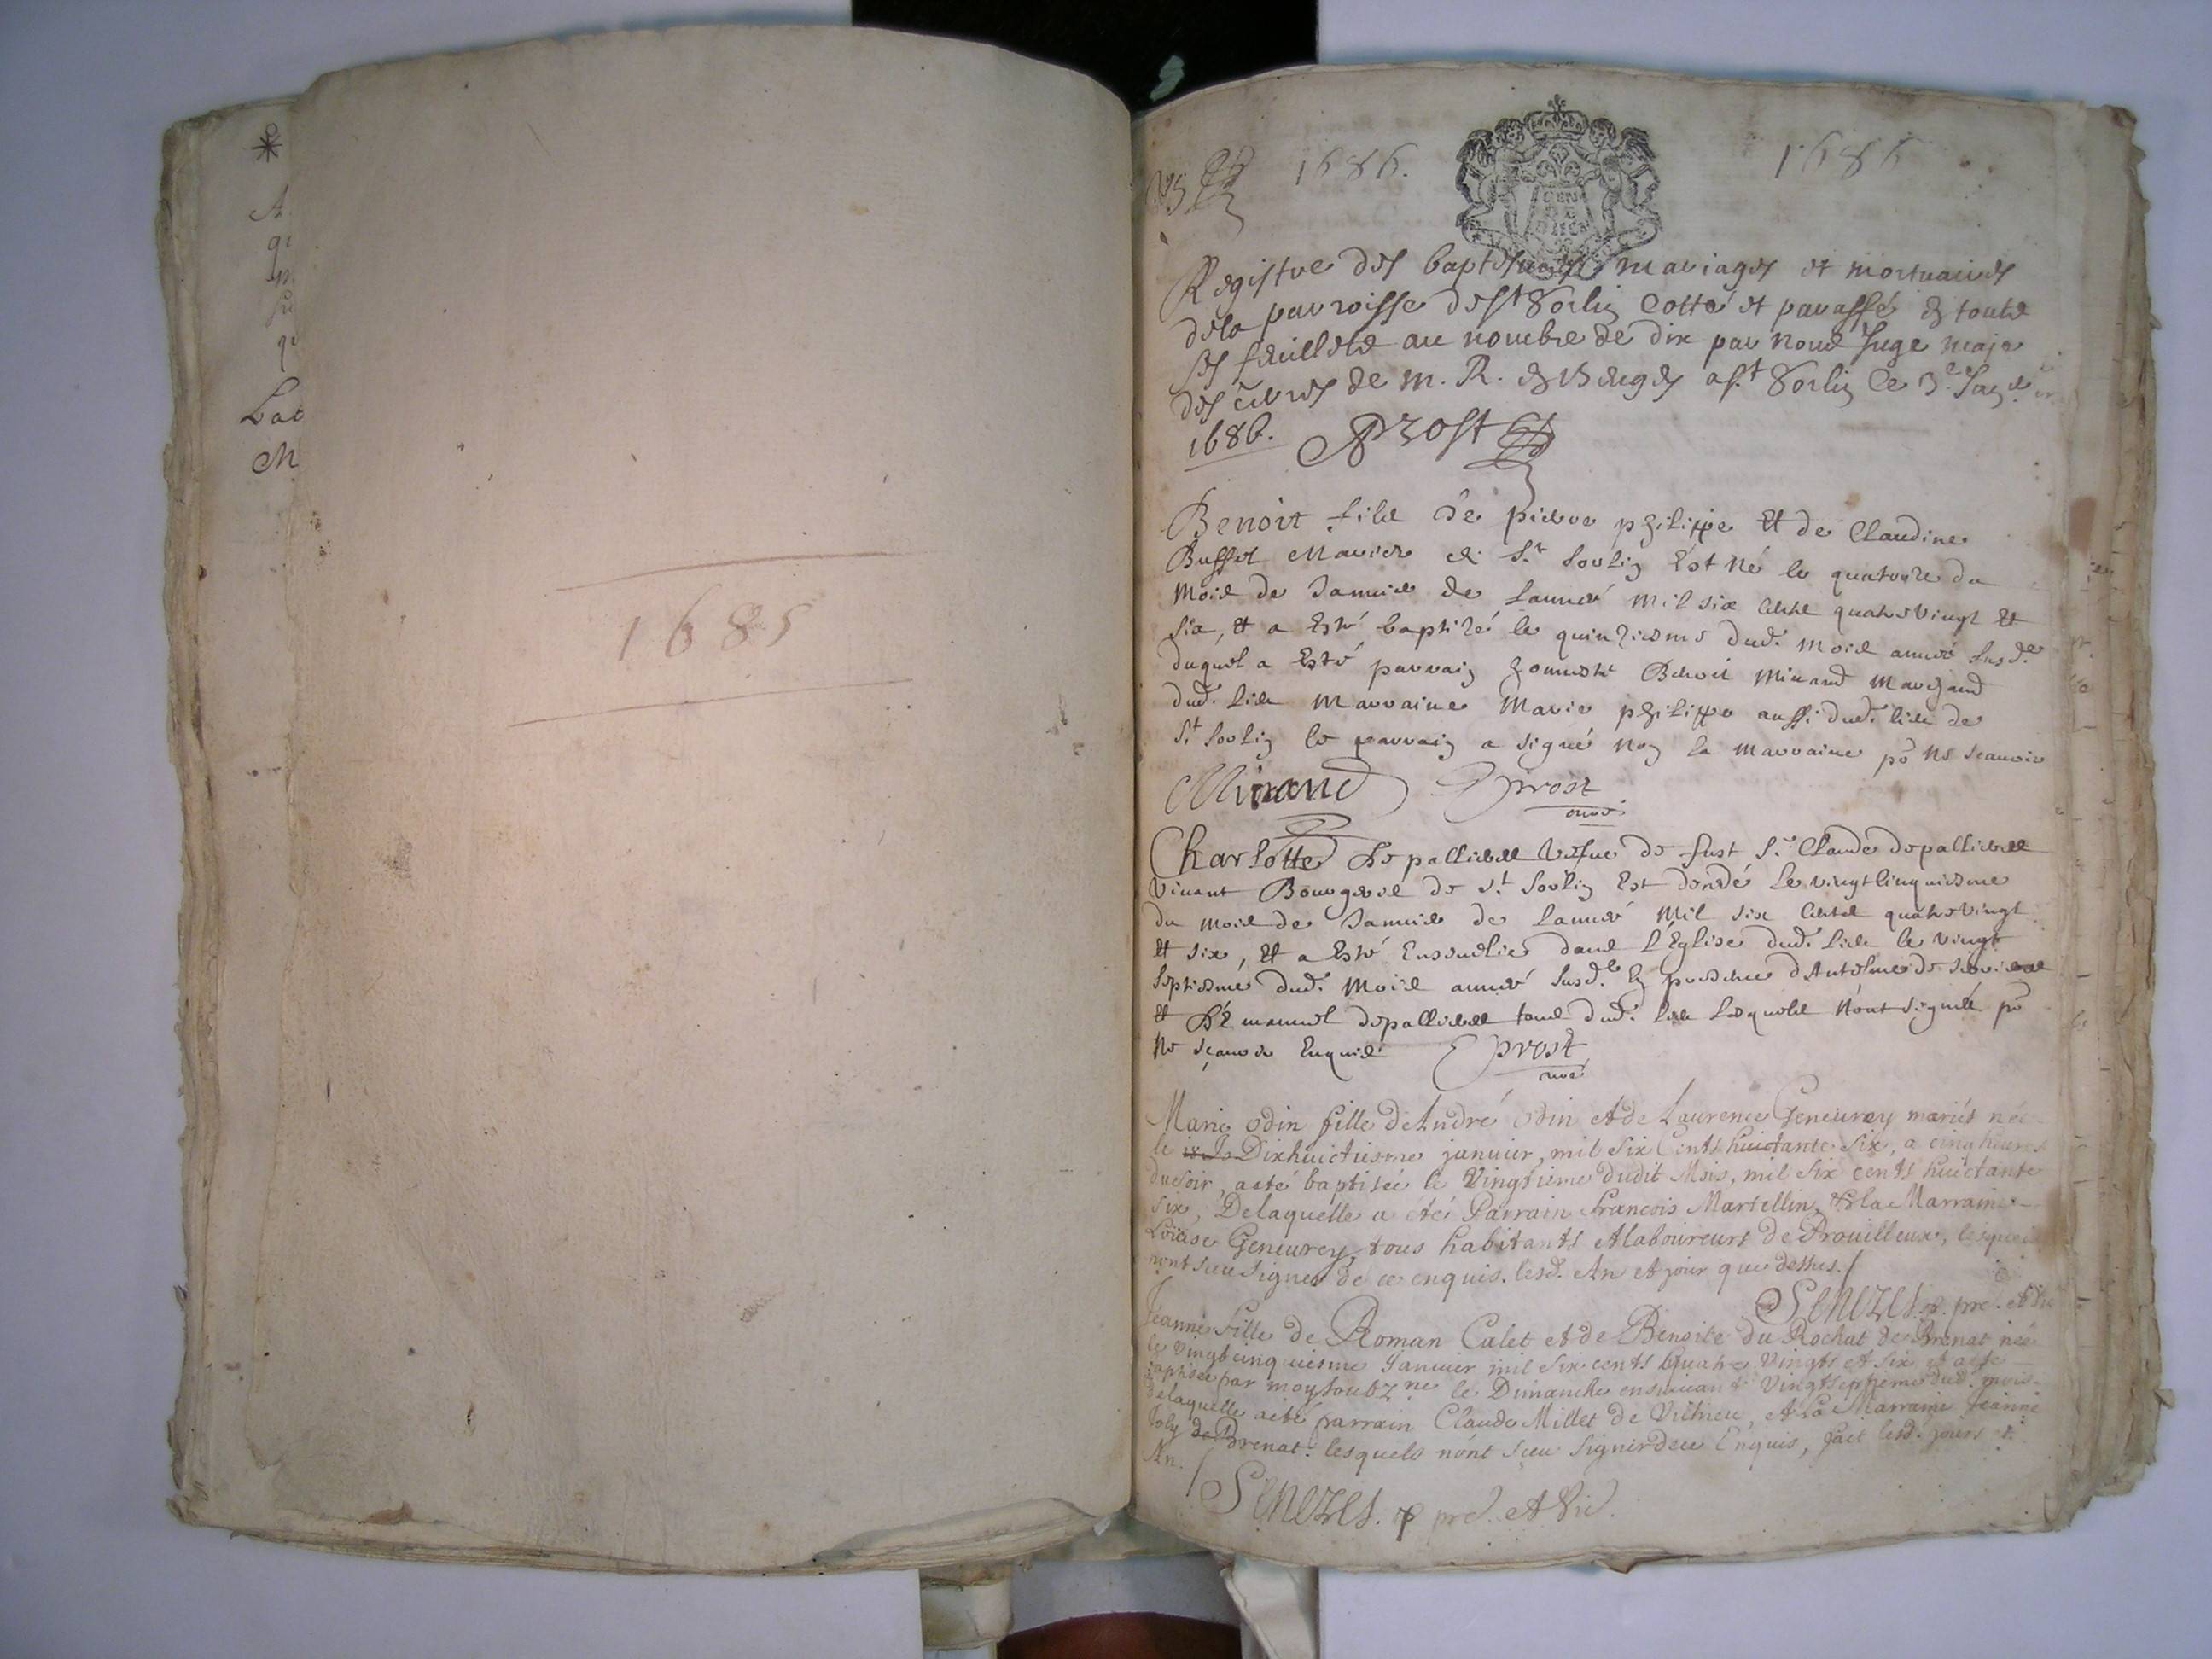 A
Lac
M
1685
1686.
1686
Registre des baptesmes mariages et mortuaires
dela parroisse de st Sorlin cotté et paraffé en toute
ses feuillets au nombre de dix par nous Juge maje
des terres de m. R. en Bugey a st Sorlin le 3e Janr
1686. Prost
Benoit fils de pierre philippe Et de Claudine
Buffet Mariez de St Sorlin Est né le quatorze du
mois de Januier de Lanneé mil six cents quatre Vingt Et
six, Et a Esté baptizé le quinziesme dud. mois anneé susde.
duquel a Esté parrain honneste Benoit Minand Marchand
dud. lieu marraine Marie philippe aussi dud. lieu de
St Sorlin le parrain a signé non la marraine po ne scauoir
Minand Prost
curé
Charlotte Depallieres Vefue de fust Sr. Claude Depallieres
Viuant Bourgeois de St Sorlin Est decedé Le vingt Cinquiesme
du mois de Januier de Lanneé mil six Cents quatre Vingt
Et six, Et a Esté Enseuelie dans L'Eglise dud. lieu le vingt
septiesme dud. mois anneé susde. En presence d'Antelme de
Et D'Emanuel Depallieres tous dud. lieu Lesquels n'ont signés po
ne sçauoir Enquis Prost
curé
Marie Odin fille de André Odin et de Laurence Geneurey mariés née
le Dixhuictiesme januier, mil six Cents huictante six, a cinq heures
du soir, a eté baptisée le Vingtieme dudit Mois, mil six cents huictante
six, De laquelle a été Parrain francois Martellin, & la Marraine
Loüise Geneurey, tous habitants et laboureurs de Prouilleux, lesquels
n'ont sceu signer de ce enquis. lesd. An et jour que dessus./
Senezes. pre. et Vic
Jeanne fille de Roman Calet et de Benoite du Rochat de Brenat née
le vingt cinquiesme Januier mil six cents quatre Vingts et six et a eté
baptisée par moy soubzne le Dimanche ensuiuant Vingt septieme dud. mois.
de laquelle a eté parrain Claude Millet de Vilieu, et La Marraine Jeanne
Joly de Brenat. lesquels n'ont sceu signer de ce Enquis, fait lesd. jours &
An. /
Senezes. pre. et Vic.